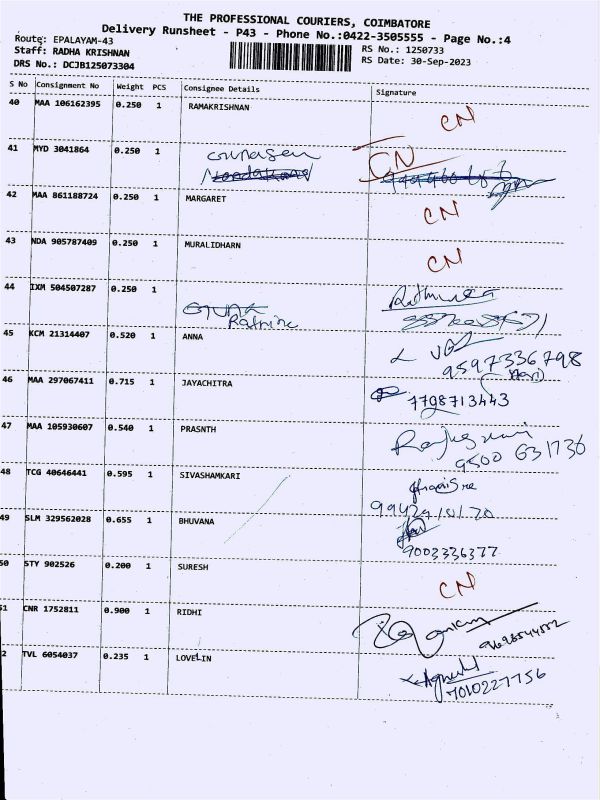 THE PROFESSIONAL COURIERS, COIMBATORE
Delivery Runsheet - P43 - Phone No.:0422-3505555 - Page No.:4
Route: EPALAYAM-43
RS No.: 1250733
Staff: RADHA KRISHNAN
RS Date: 30-Sep-2023
DRS No.: DCJB125073304
S No Consignment No Weight PCS Consignee Details Signature
40 MAA 106162395 0.250 1 RAMAKRISHNAN CN
41 MYD 3041864 0.250 1 CN
42 MAA 861188724 0.250 1 MARGARET CN
43 NDA 905787409 0.250 1 MURALIDHARN CN
44 IXM 504507287 0.250 1
45 KCM 21314407 0.520 1 ANNA
9597336798
46 MAA 297067411 0.715 1 JAYACHITRA 7798713443
47 MAA 105930607 0.540 1 PRASNTH
9500 631736
48 TCG 40646441 0.595 1 SIVASHAMKARI
49 SLM 329562028 0.655 1 BHUVANA
9003336377
50 STY 902526 0.200 1 SURESH CN
51 CNR 1752811 0.900 1 RIDHI
2 TVL 6054037 0.235 1 LOVELIN
7010227756